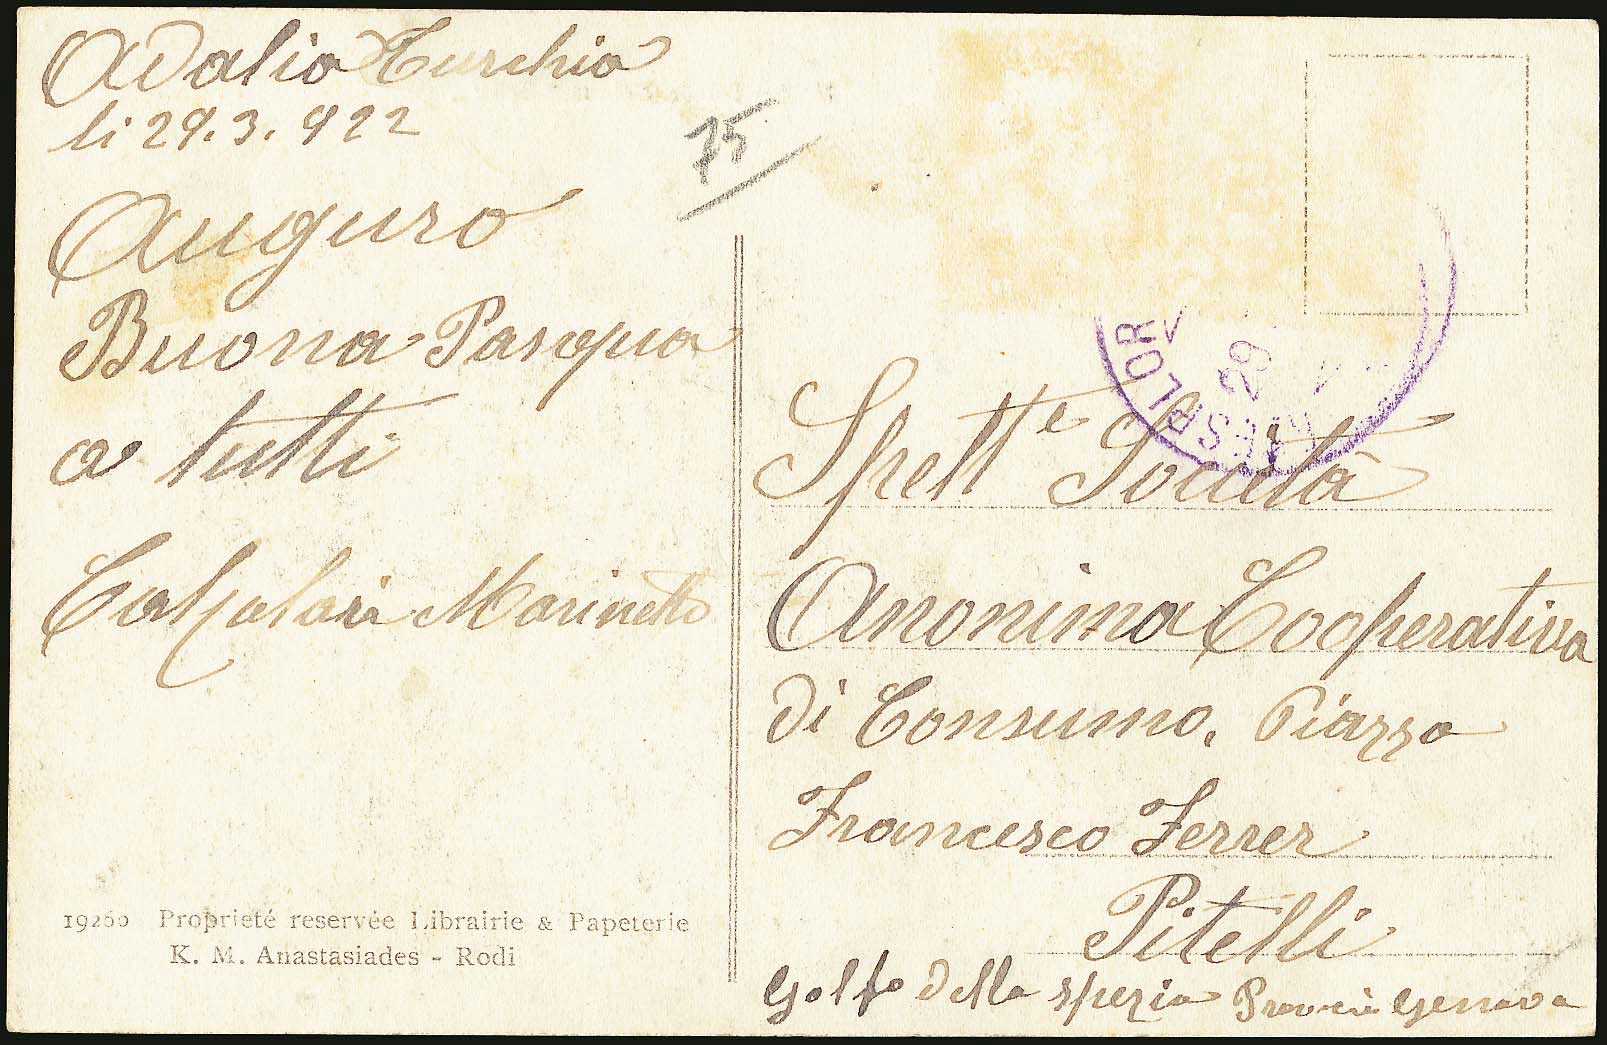 Adalia Turchia
li 29.3.922
75
Auguro
Buona Pasqua
a tutti
Calzolari Marinetto
29
Spett.e Società
Anonima Cooperativa
di Consumo. Piazza
Francesco Ferrer
Pitelli
Golfo della Spezia Genova
19260 Proprieté reservée Librairie & Papeterie
K. M. Anastasiades - Rodi